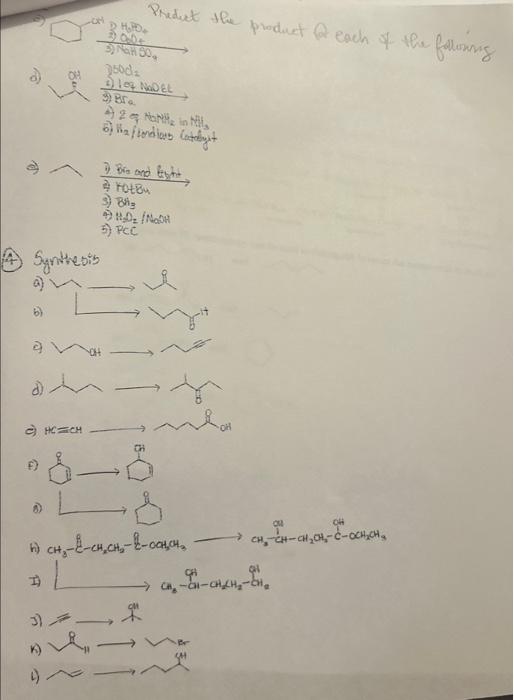 Predict the product of each of the following
OH
1) H3PO4
2) OsO4
3) NaHSO4
d) OH
1) SOCl2
2) 1 eq NaOEt
3) Br2
4) 2 eq NaNH2 in NH3
5) H2/Lindlars Catalyst
e)
1) Br2 and light
2) KOtBu
3) BH3
4) H2O2/NaOH
5) PCC
4 Synthesis
a) O
b) H O
c) OH
d) O
e) HC≡CH O OH
F) O OH
g) O
h) CH3-C-CH2CH2-C-OCH2CH3 CH3-CH-CH2CH2-C-OCH2CH3
O O OH OH
I) CH3-CH-CH2CH2-CH2
OH OH
J) OH
K) O H Br
L) OH